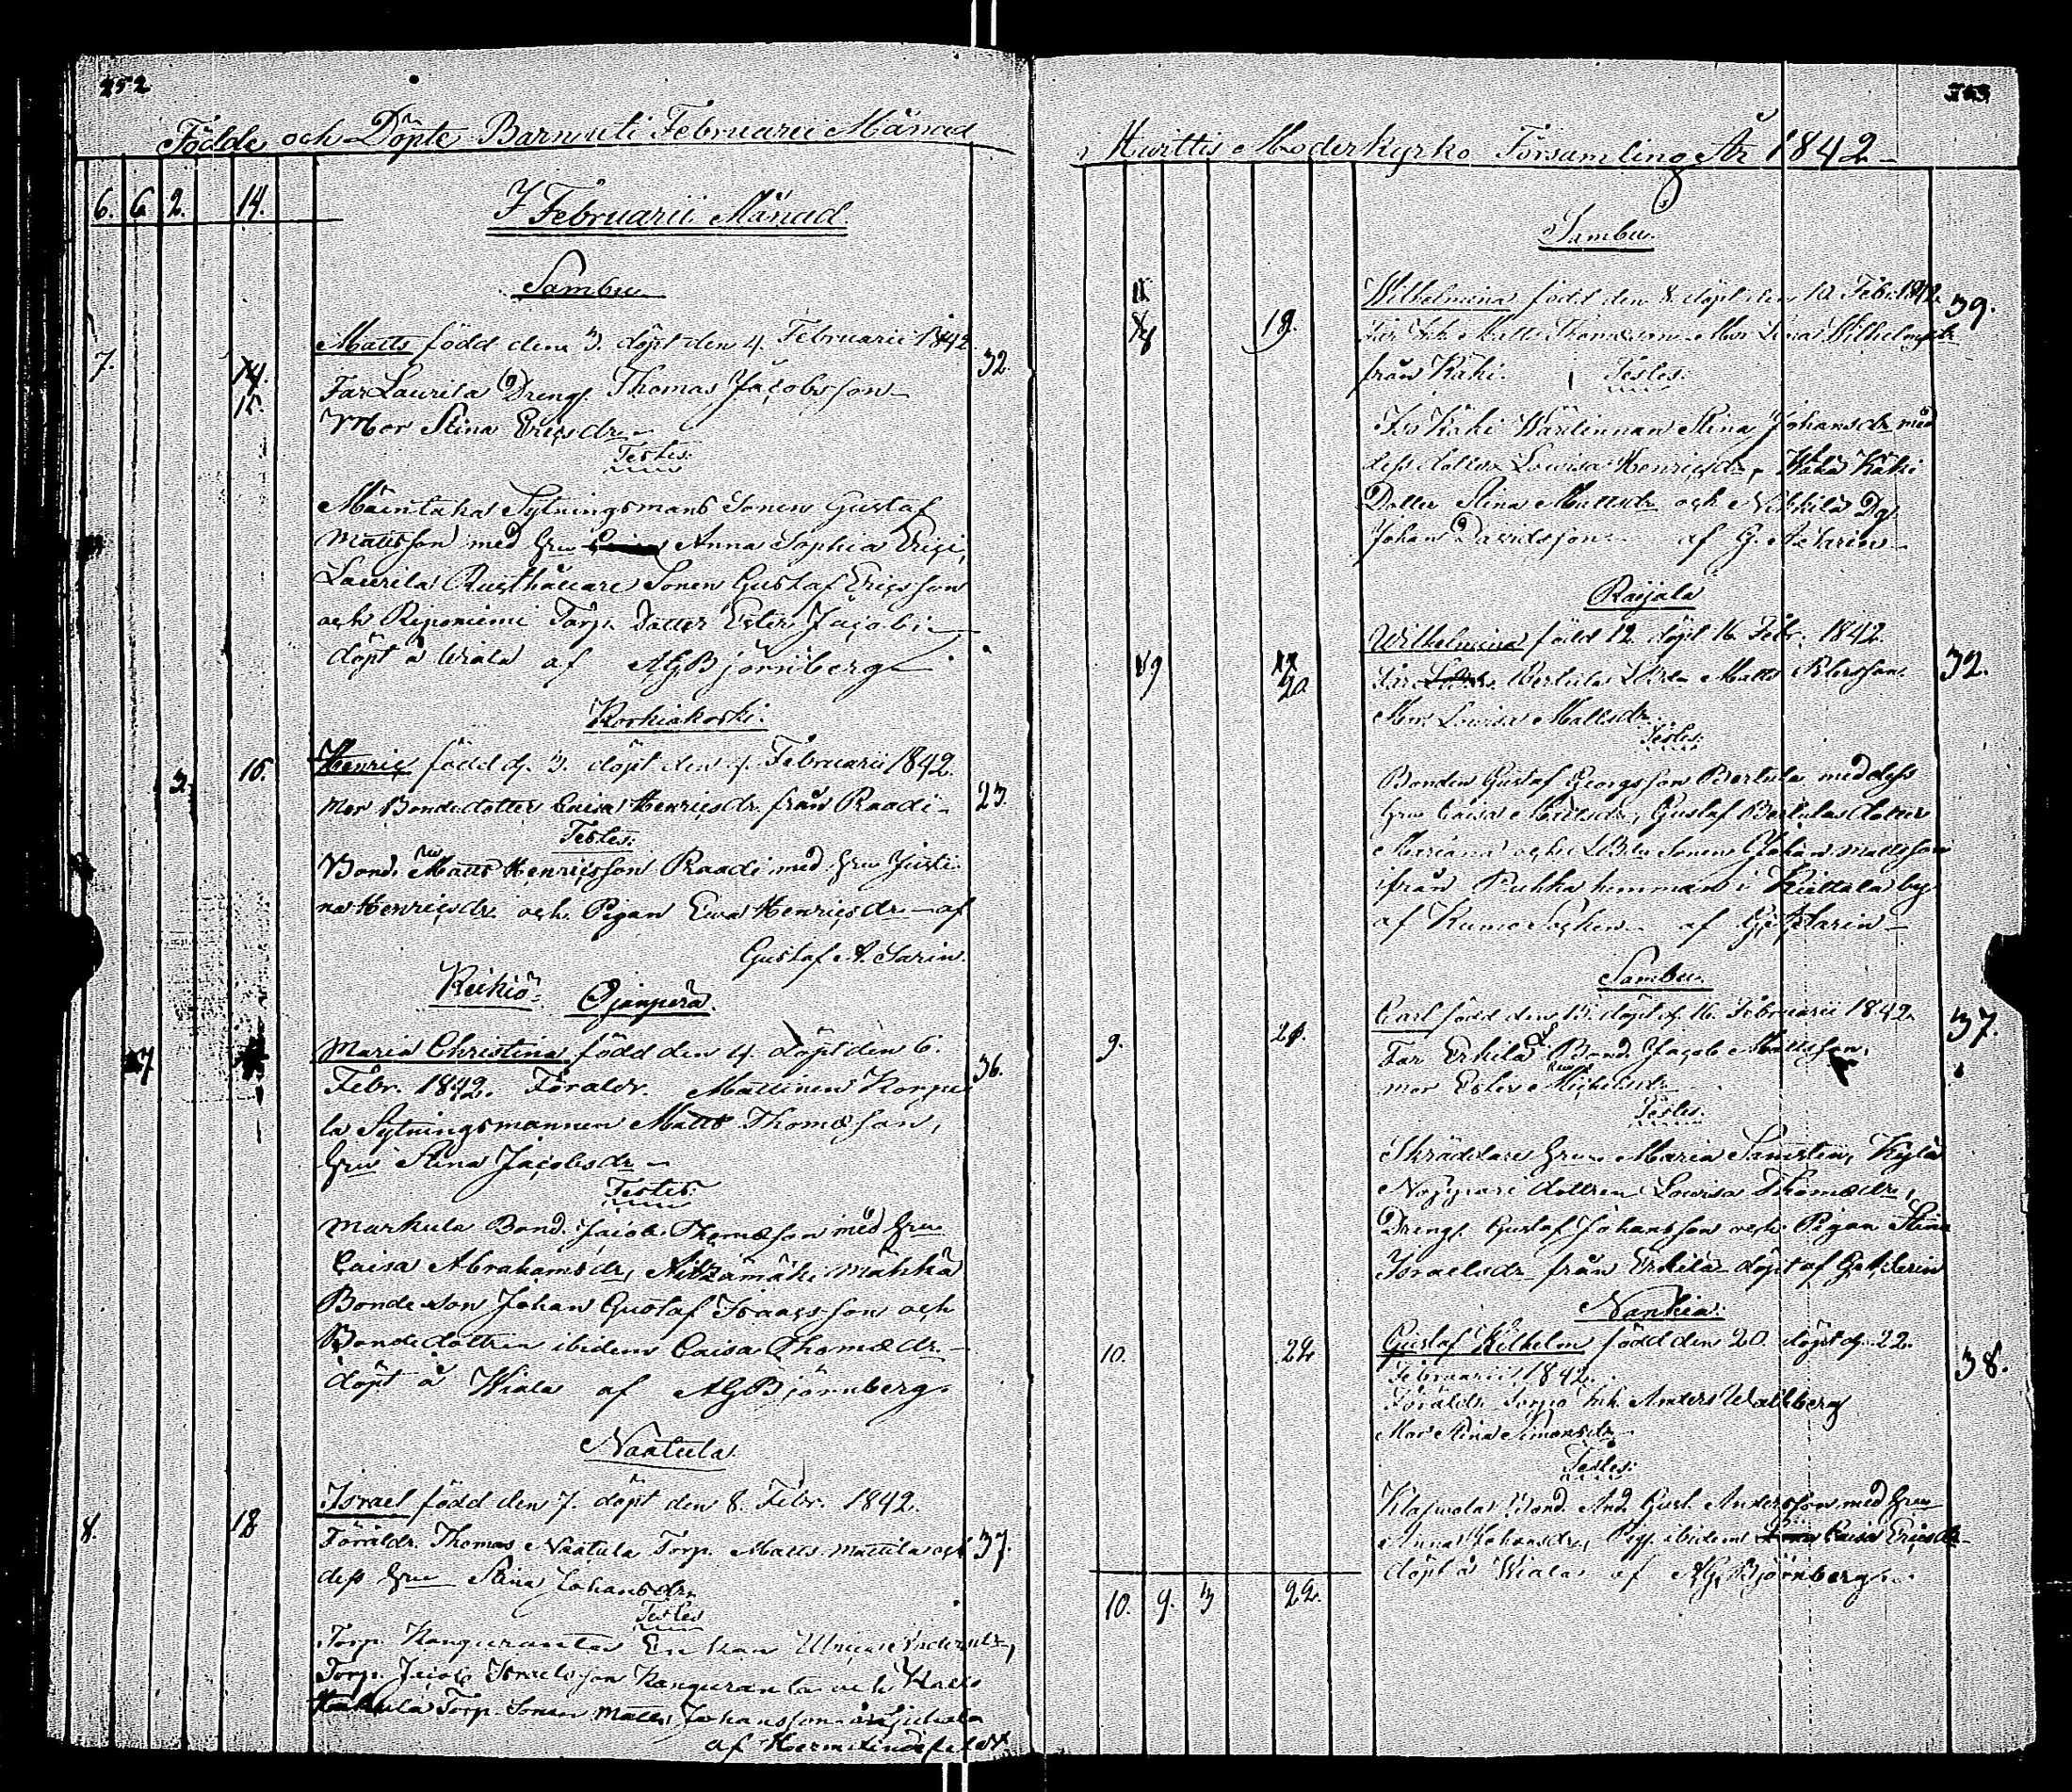 252
Födde och Döpte Barn uti Februarii Månad
6. 6 2. 14.
I Februarii Månad.
Sambu
Matts född den 3. döpt den 4. Februarii 1842.
7. 14. 15. 32.
Far Laurila Dreng. Thomas Jacobsson
Mor Stina Ericsdr
Testes:
Mäentaka Sytningsmans Sonen Gustaf
Mattsson med hru Anna Sophia Erici,
Laurila Rusthållare Sonen Gustaf Ericsson
och Riponiemi Torp. Dotter Ester Jacobi
döpt å Wiala af AGBjörnberg
Korkiakoski.
Henric född d. 3. döpt den 4. Februarii 1842.
3. 16. 23.
Mor Bondedotter Caisa Henricsdr. från Raadi
Testes:
Bond. Matts Henricsson Raadi med hru Justi-
na Henricsdr. och Pigan Ewa Henricsdr. af
Gustaf A. Sarin.
Keikiö Ojanperä.
Maria Christina född den 4. döpt den 6.
7 36.
Febr. 1842. Föräldr. Mattinen Korpe
la Sytningsmannen Matts Thomæson,
hru Stina Jacobsdr
Testes:
Markula Bond. Jacob Thomæson med hru
Caisa Abrahamsdr, Mahka
Bonde son Johan Gustaf Isaacsson och
Bondedottren ibidem Caisa Thomædr.
döpt å Wiala af AGBjörnberg.
Naatula
Israel född den 7. döpt den 8. Febr. 1842.
8. 18 37.
Föräldr. Thomas Naatula Torp. Matts Mattila och
dess hru Stina Johansdr.
Testes
Torp. Kanguranta Enkan Ulrica Andersdr,
Torp. Jacob Israelsson Kanguranta och
Torp. Sonen Matts Johansson
af
i Hwittis Moderkyrko Församling År 1842
Sambu.
Wilhelmina född den 8. döpt den 10. Feb. 1842.
8 19. 39.
Far Inh. Matts Thomæson Mor Lena Wilhelmsdr
från Käki. Testes:
Iso Käki Wärdinnan Stina Johansdr med
dess dotter Lowisa Henricsdr, Käki
Dotter Stina Mattsdr och Nikkilä Dg.
Johan Davidsson af G. A. Sarin
Raijala
Wilhelmina född 12. döpt 16. Febr. 1842.
9 20 32.
Far Bertula Matts
Mor Lowisa Mattsdr
Testes:
Bonden Gustaf Georgsson Bertula med dess
hru Caisa, Gustaf Bertulas dotter
Mariana och Sonen Johan Mattsson
ifrån hemman i Kiettala by
af Kumo Socken af G. A. Sarin
Sambu.
Carl född den 15. döpt d. 16. Februarii 1842.
9. 21. 37.
Far Erkilä Bond. Jacob Mattsson,
mor Ester Michelsdr
Testes.
Skräddare hru Maria Kylä
dottren Lowisa Thomædr,
Dreng. Gustaf Johansson och Pigan Stina
Israelsdr från Erkilä döpt af GASarin
Nankia.
Gustaf Wilhelm född den 20. döpt d. 22.
10. 22 38.
Februarii 1842.
Föräldr. Torpo Inh. Anders Wallberg
Mor Stina Simonsdr
Testes:
Bond. And. Gust. Andersson med hru
Anna Johansdr, Pig. ibidem Caisa Ericsdr
döpt å Wiala af AGBjörnberg.
10. 9. 3 22.